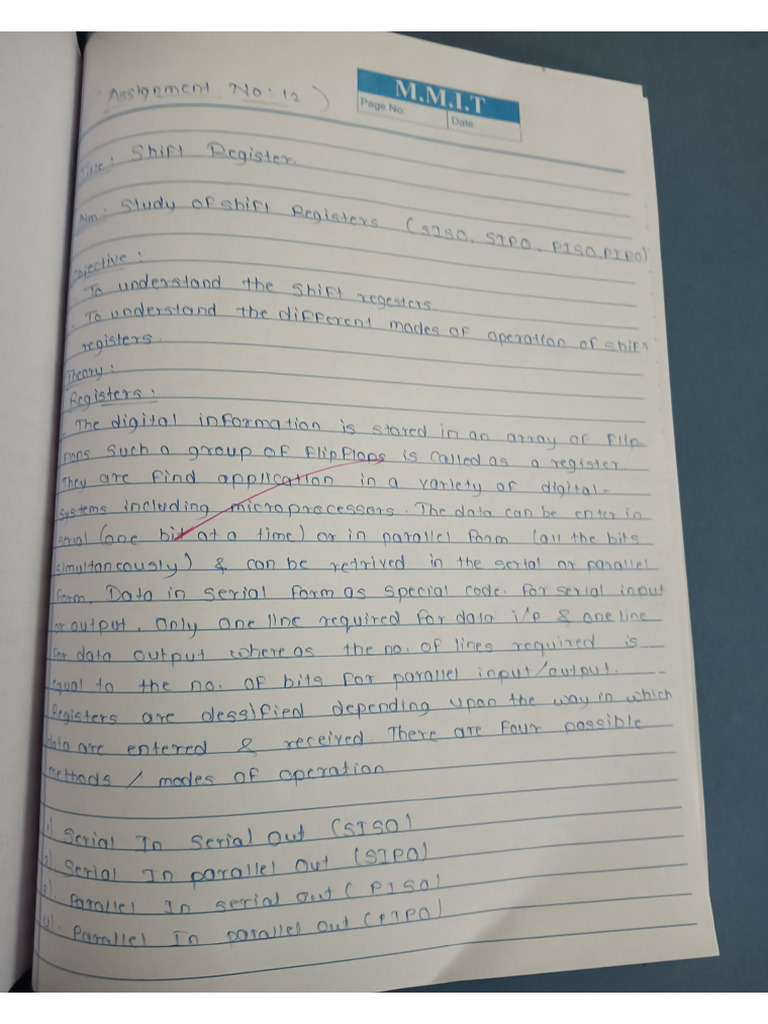 Assignment No: 12)
M.M.I.T
Page No.
Date
Title: Shift Register.
Aim: Study of Shift Registers (SISO, SIPO, PISO, PIPO)
Objective:
To understand the Shift regesters
To understand the different modes of operation of shift
registers.
Theory:
Registers:
The digital information is stored in an array of flip
flops such a group of flipflops is called as a register.
They are find application in a variety of digital-
systems including microprocessors. The data can be enter in
serial (one bit at a time) or in parallel form (all the bits
simultancously) & can be retrived in the serial or parallel
form. Data in serial form as special code. for serial input
or output, only one line required for data i/p & one line
for data output where as the no. of lines required is
equal to the no. of bits for parallel input/output.
Registers are dessified depending upon the way in which
data are entered & received. There are four possible
methods / modes of operation
1) Serial In Serial Out (SISO)
2) Serial In parallel Out (SIPO)
3) Parallel In serial out (PISO)
4). Parallel In parallel out (PIPO)